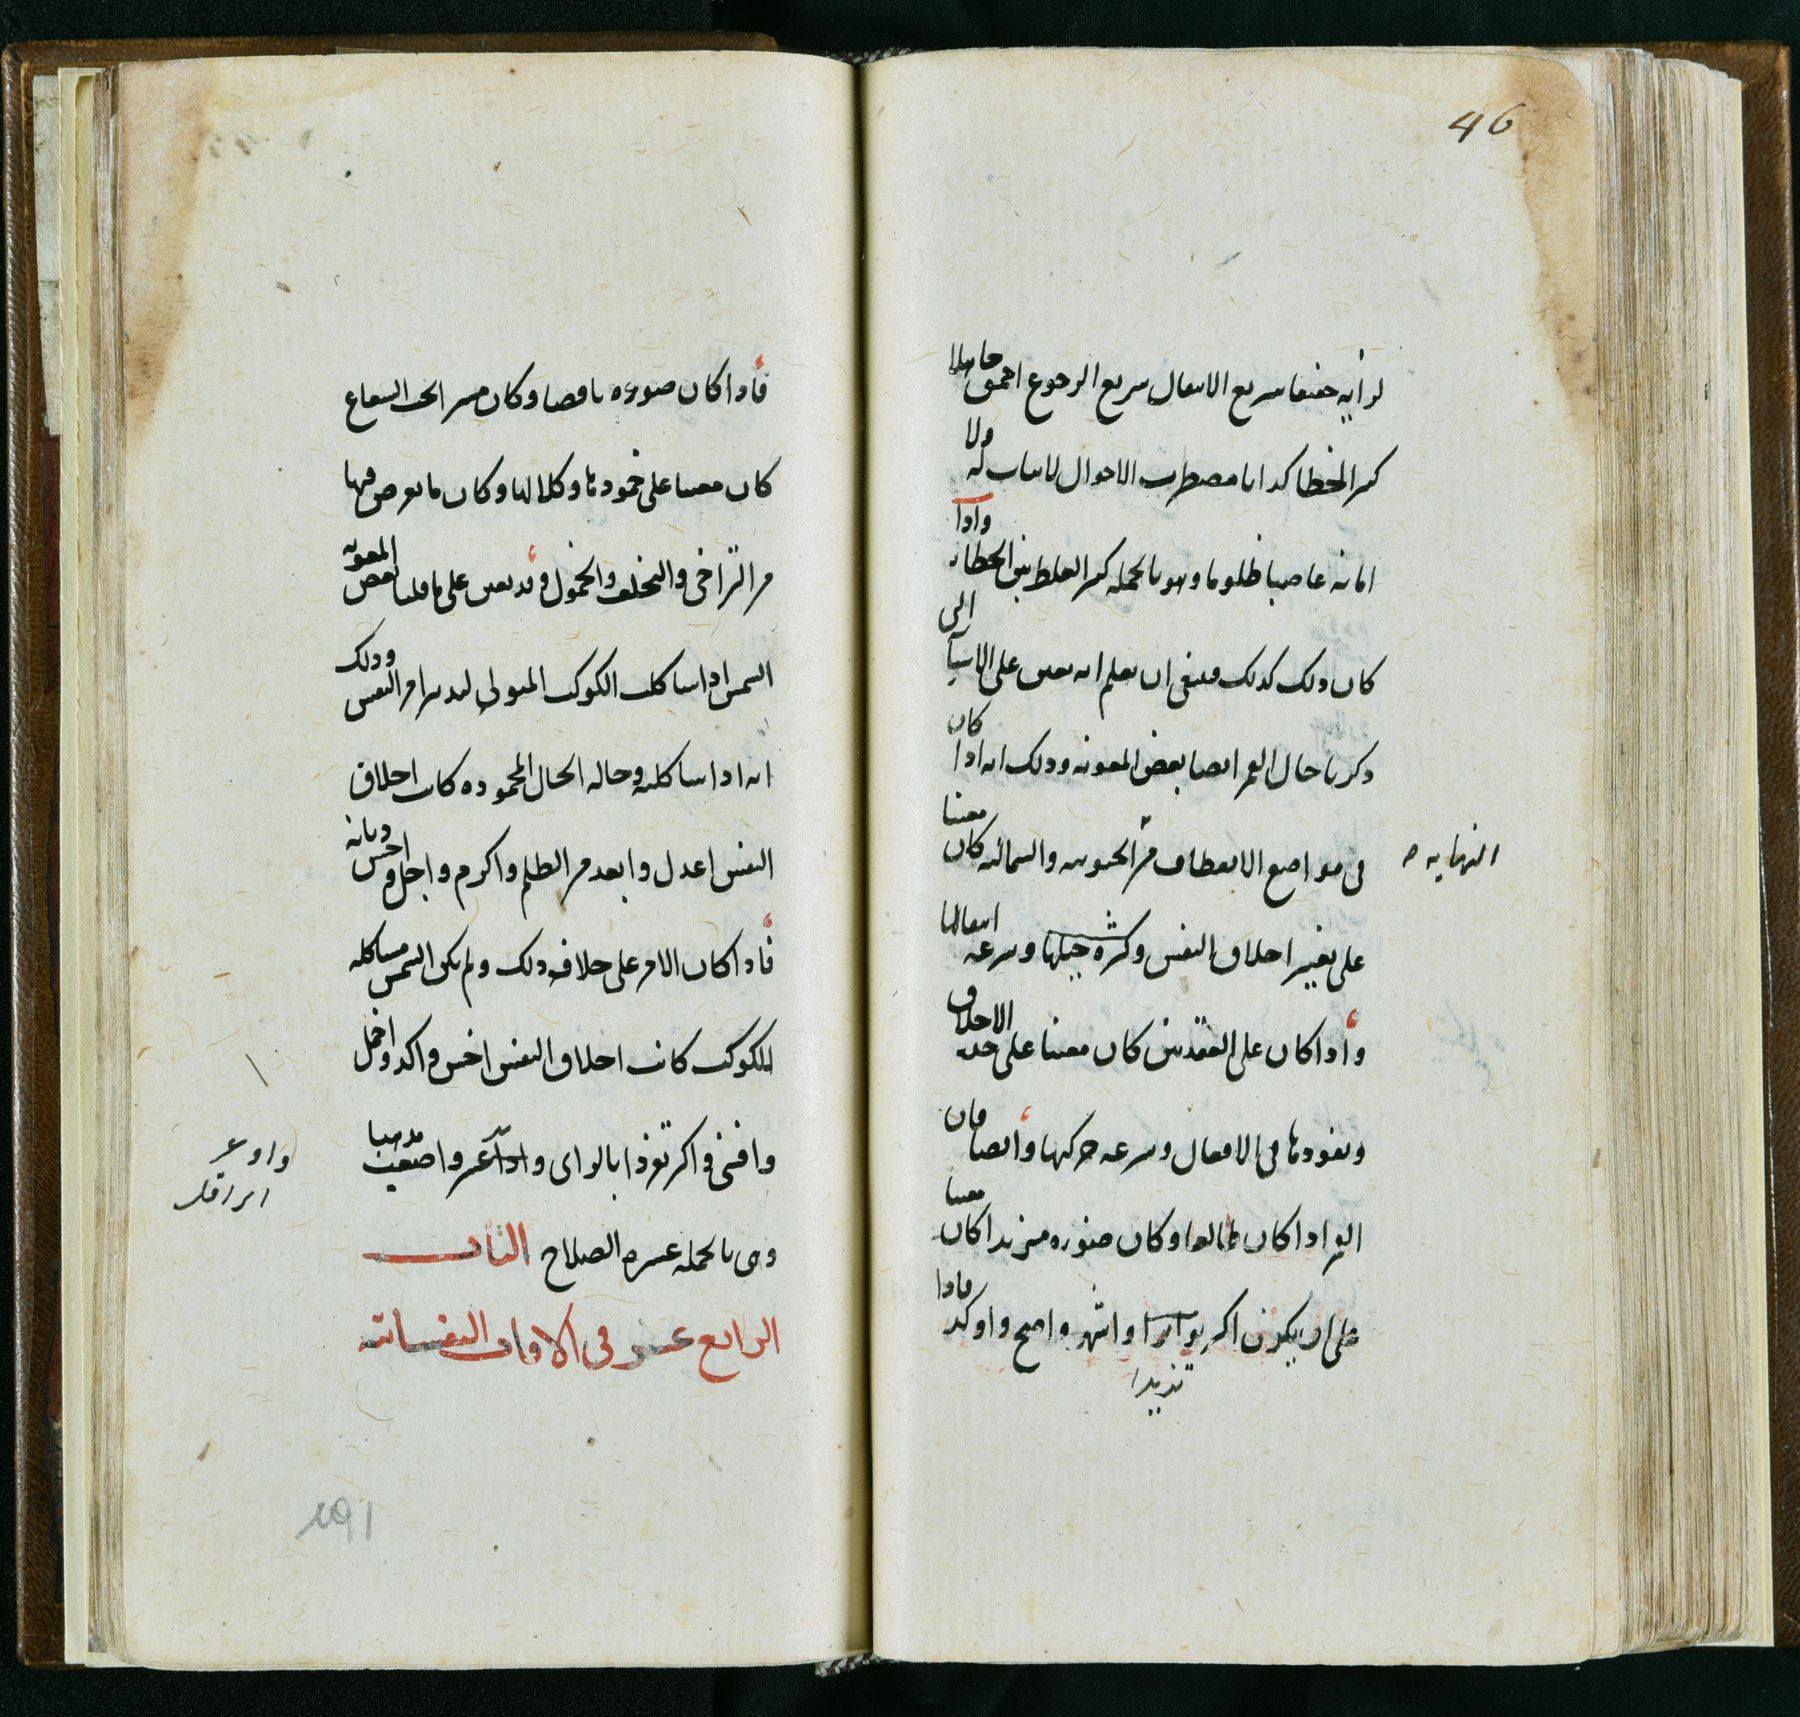 46
لرأيه خفيفا سريع الانتقال سريع الرجوع احمق جاهلا
كثير الخطا كذابا مضطرب الاحوال لا ثبات له ولا
امانة غاصبا ظلوما وهو بالجملة كثير الغلط بين الخطا فاذا
كان ذلك كذلك فينبغي ان يعلم انه يعين على الاشيا التي
ذكرنا حال القمر ايضا بعض المعونه وذلك انه اذا كان
في مواضع الانعطاف من الجنوبيه والشماليه كان معينا
النهايه
على تغيير اخلاق النفس وكثرة حيلها وسرعة انتقالها
واذا كان على العقدتين كان معينا على حدة الاخلاق
ونفوذها في الافعال وسرعه حركتها وايضا فان
القمر اذا كان طالعا وكان ضوءه متزيدا كان معينا
على ان يكون اكثر تواترا واشهر واصح واوكد فاذا
تزيدا
فاذا كان ضوءه ناقصا وكان مسيرا تحت الشعاع
كان معينا على خمودها وكلالها وكان ما يعرض فيها
من التراخي والتخلف والخمول وقد يعين على ما قلنا بعض المعونه
الشمس اذا شاكلت الكوكب المتولي لتدبير امر النفس وذلك
انه اذا شاكلته وحاله الحال المحموده كانت اخلاق
النفس اعدل وابعد من الظلم واكرم واجل واحسن ديانة
فاذا كان الامر على خلاف ذلك ولم يكن الشمس مشاكله
للكوكب كانت اخلاق النفس اخس واكد واخمل
وافنى في اكثر تفردا بالراي واعسر واصعب مذهبا
وهي بالجمله عسرة الصلاح الباب
الرابع عشر في الافات النفسانيه
191